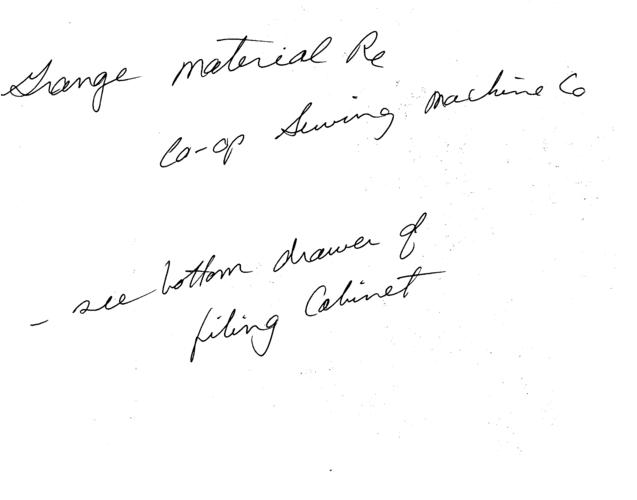 Grange material Re
Co-op Sewing Machine Co
- see bottom drawer of
filing Cabinet